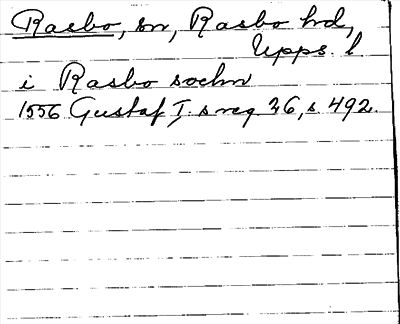 Rasbo, sn, Rasbo hd,
Upps. l.
i Rasbo sochn
1556 Gustaf I:s reg 26, s. 492.